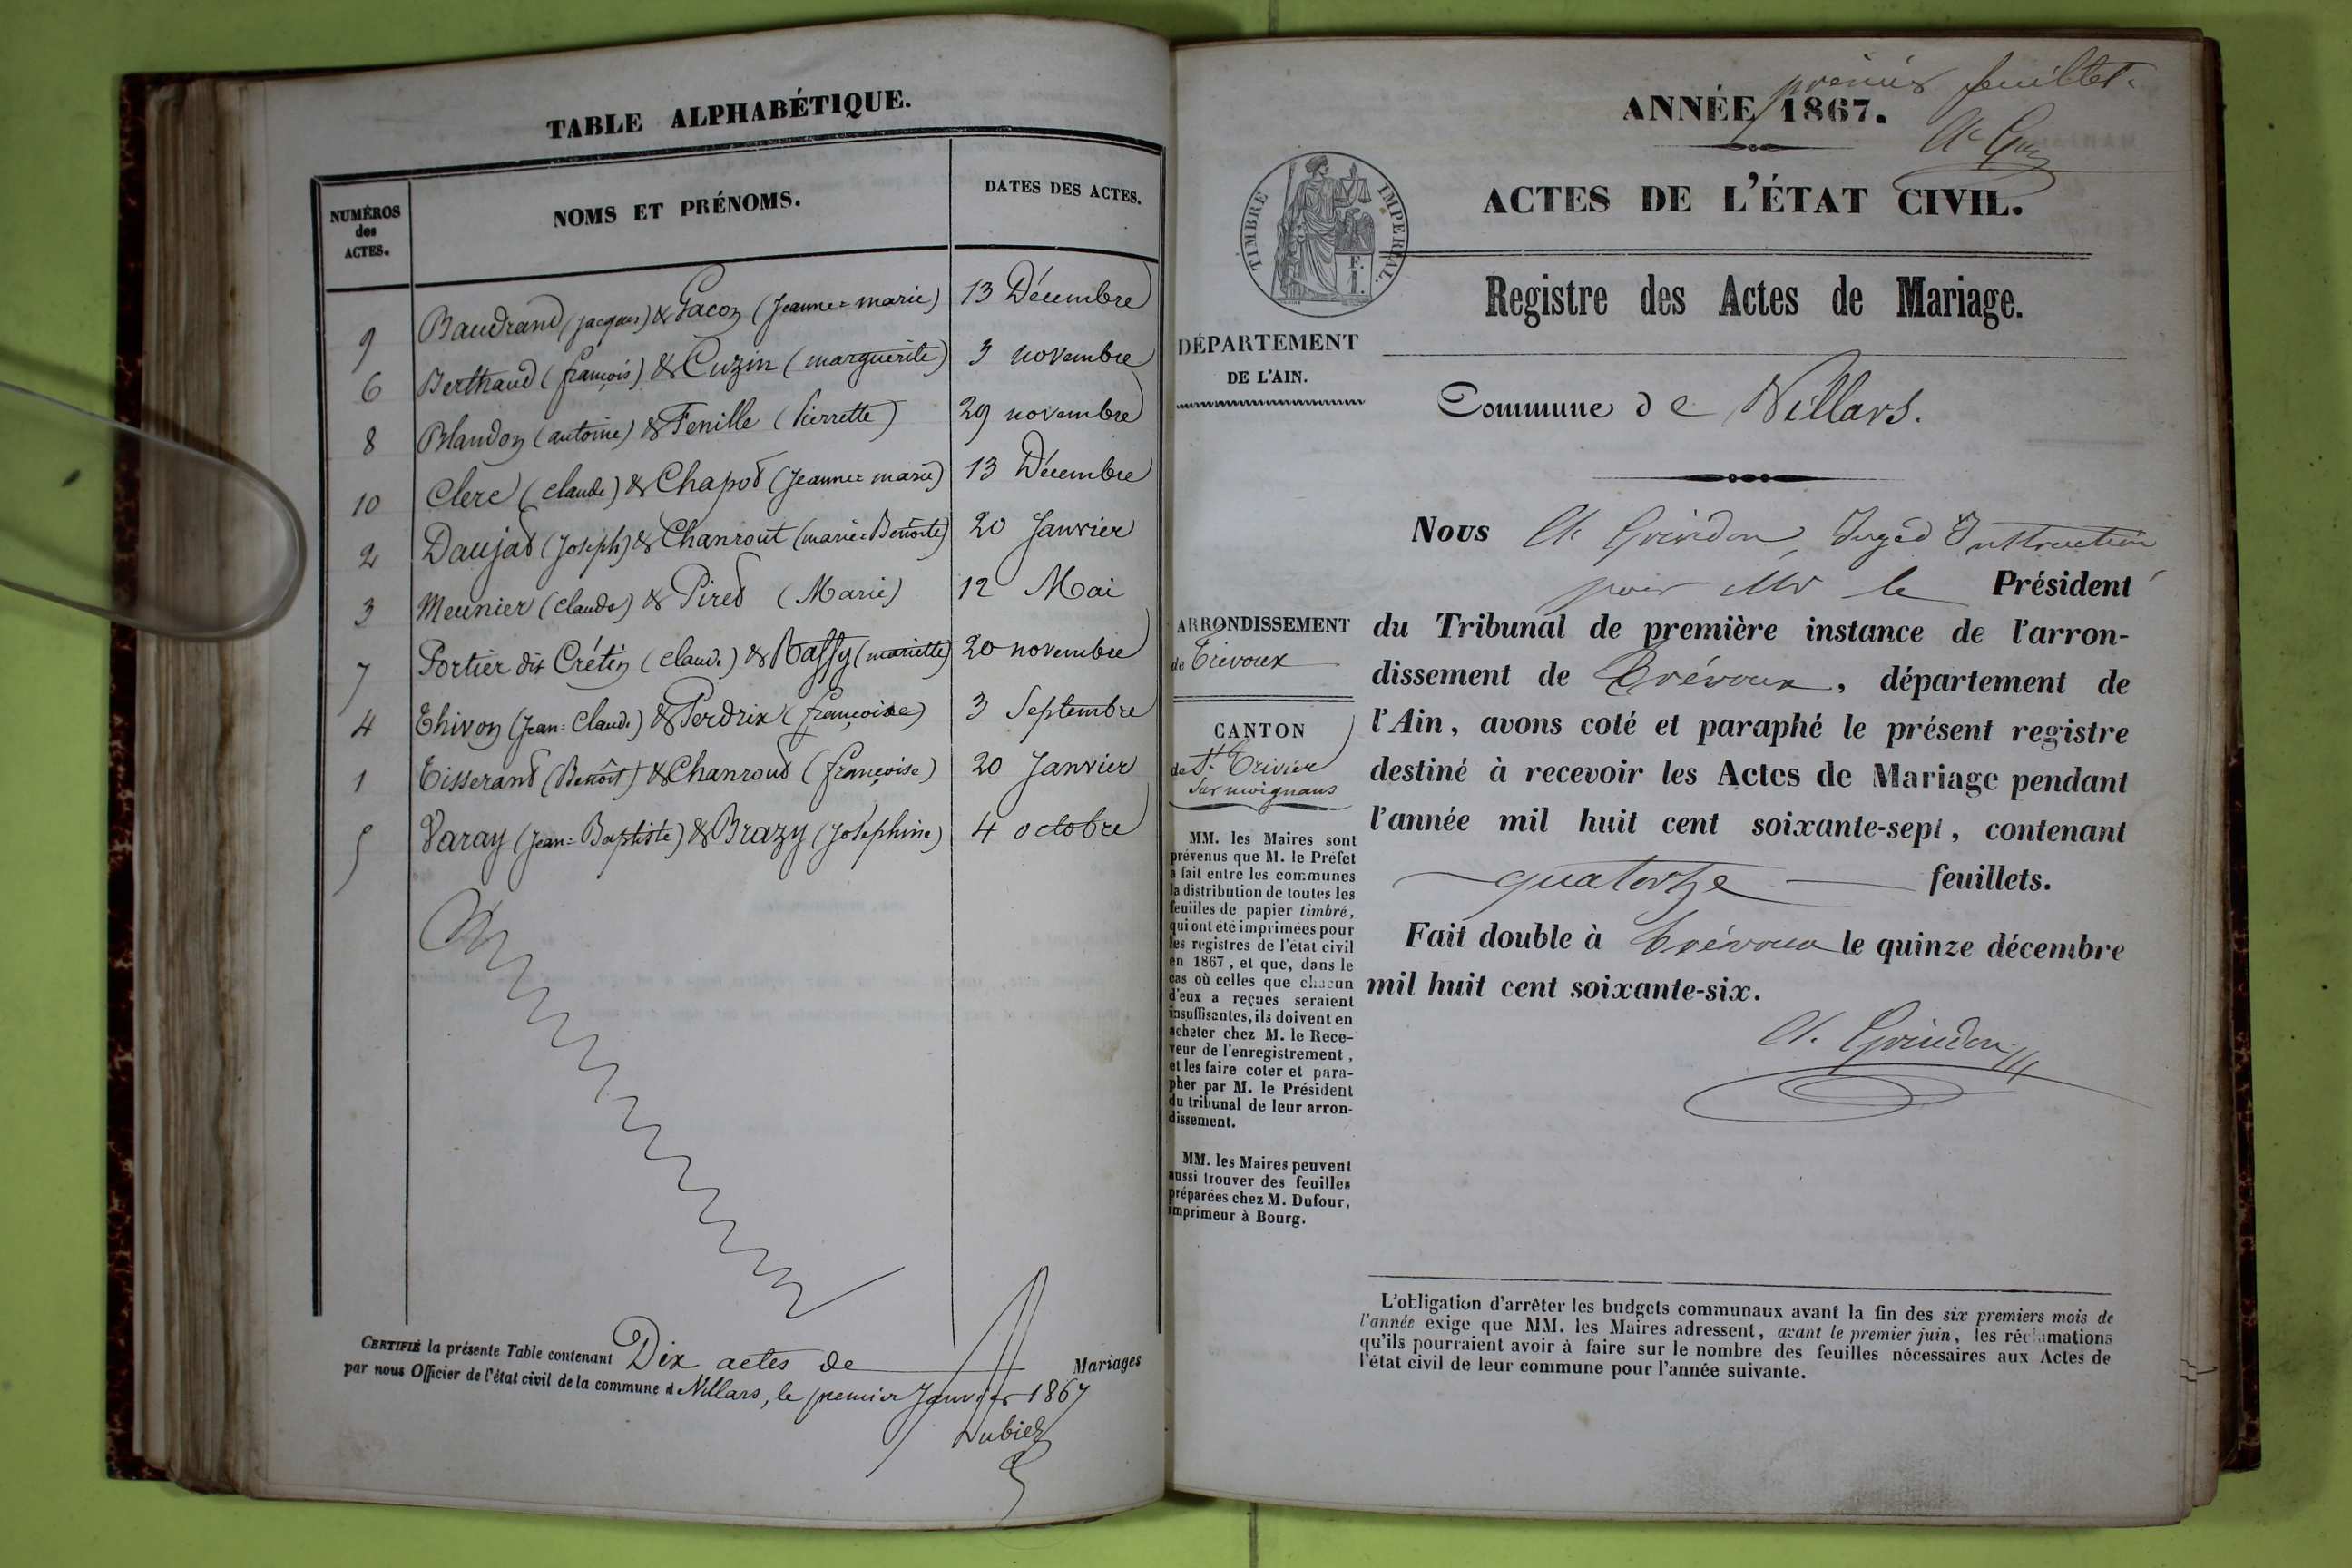 TABLE ALPHABÉTIQUE.
NUMÉROS des ACTES. NOMS ET PRÉNOMS. DATES DES ACTES.
9 Baudrand (Jacques) & Gacon (Jeanne=marie) 13 Décembre
6 Berthaud (françois) & Cuzin (marguerite) 3 novembre
8 Blandon (antoine) & Fenille (Pierrette) 29 novembre
10 Clerc (claude) & Chapot (Jeanne=marie) 13 Décembre
2 Daujat (Joseph) & Chanrout (marie=Benoîte) 20 Janvier
3 Meunier (claude) & Piret (Marie) 12 Mai
7 Portier dit Crétin (claude) & Bassy (mariette) 20 novembre
4 Thivon (Jean=Claude) & Perdrix (françoise) 3 Septembre
1 Tisserand (Benoît) & Chanroud (françoise) 20 Janvier
5 Varay (Jean=Baptiste) & Brazy (Joséphine) 4 octobre
CERTIFIÉ la présente Table contenant Dix actes de Mariages
par nous Officier de l'état civil de la commune de Villars, le premier Janvier 1867
Dubiez
premier feuillet.
ANNÉE 1867.
ACTES DE L'ÉTAT CIVIL.
TIMBRE IMPERIAL.
Registre des Actes de Mariage.
DÉPARTEMENT
DE L'AIN.
Commune de Villars.
Nous Ch Grindon, Juge d'Instruction
pour Mr le Président
ARRONDISSEMENT
de Trévoux
du Tribunal de première instance de l'arron-
dissement de Trévoux, département de
l'Ain, avons coté et paraphé le présent registre
destiné à recevoir les Actes de Mariage pendant
l'année mil huit cent soixante-sept, contenant
quatorze feuillets.
Fait double à Trévoux le quinze décembre
mil huit cent soixante-six.
Ch. Grindon
CANTON
de St. Trivier
sur moignans
MM. les Maires sont
prévenus que M. le Préfet
a fait entre les communes
la distribution de toutes les
feuilles de papier timbré,
qui ont été imprimées pour
les registres de l'état civil
en 1867, et que, dans le
cas où celles que chacun
d'eux a reçues seraient
insuffisantes, ils doivent en
acheter chez M. le Rece-
veur de l'enregistrement,
et les faire coter et para-
pher par M. le Président
du tribunal de leur arron-
dissement.
MM. les Maires peuvent
aussi trouver des feuilles
préparées chez M. Dufour,
imprimeur à Bourg.
L'obligation d'arrêter les budgets communaux avant la fin des six premiers mois de
l'année exige que MM. les Maires adressent, avant le premier juin, les réclamations
qu'ils pourraient avoir à faire sur le nombre des feuilles nécessaires aux Actes de
l'état civil de leur commune pour l'année suivante.